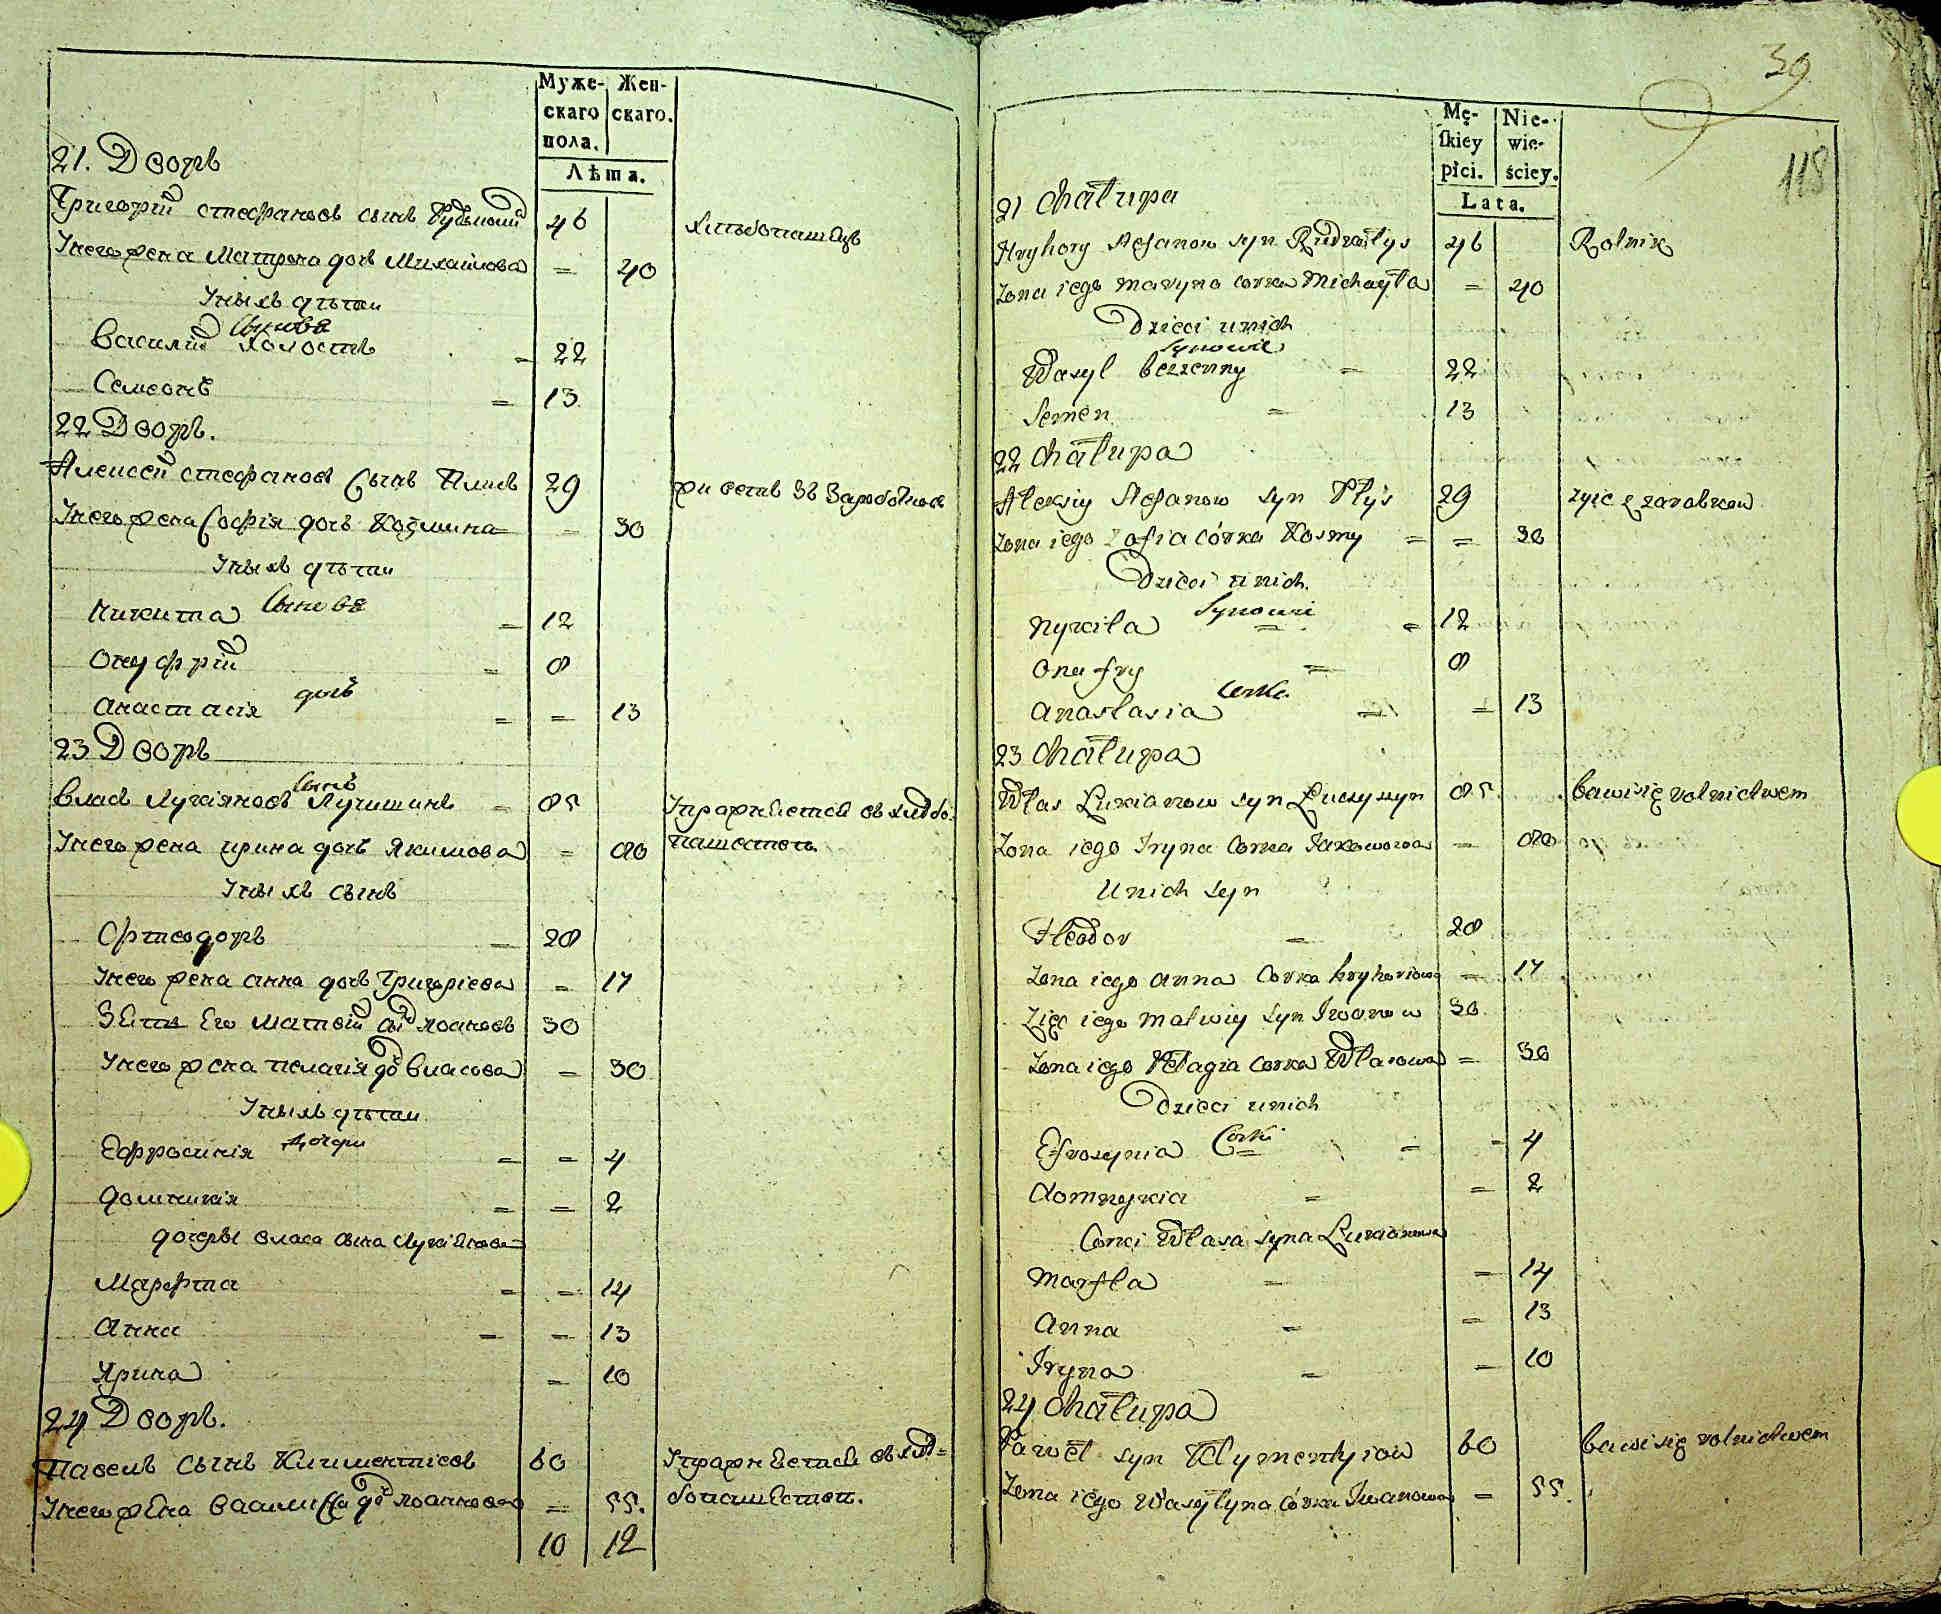 Муже-
скаго
пола.
Жен-
скаго.
Лѣта.
21. Дворъ
Григорій стефановъ сынъ 46 хлѣбопашецъ
У него жена Матрона дочь Михайлова = 40
У ныхъ дѣти
Сыновѣ
Василій холостъ = 22
Семеонъ = 13
22 Дворъ.
Алексѣй стефановъ Сынъ 29 живетъ зъ Заработковъ
У него жена Софія дочь Козмина = 30
У ныхъ дѣти
Никита Сыновѣ = 12
Онуфрій = 8
Анастасія дочь = = 13
23 Дворъ
Сынъ
Власъ Лукіяновъ Лучишинъ = 85 Упражняется въ хлѣбо-
У него жена Ирина дочь Якимова = 80 пашествѣ
У ныхъ сынъ
Фтеодоръ = 28
У него жена Анна дочь Григоріева = 17
Зять Его Матвій Іоановъ 30
У него жена Пелагія Власова = 30
У ныхъ дѣти
Ефросинія Дочери = = 4
Домникія = = 2
дочеры Власа сына Лукіянова
Марфта = = 14
Анна = = 13
Ярина = 10
24 Дворъ.
Павелъ Сынъ Климентіевъ 60 Упражняется въ хлѣ=
У него жена Василисса Іоаннова = 55. бопашествѣ.
10 12
39
118
Mę-
ſkiey
płci.
Nie-
wie-
ściey.
Lata.
21 Chałupa
Hryhory Stefanow syn Rudzałys 46 Rolnik
Zona iego Maryna Corka Michayła = 40
Dzieci u nich
Synowie
Wasyl bezzenny = 22
Semen = 13
22 Chałupa
Aleksiy Stefanow syn Płys 29 zyie z zarobkow
Zona iego Zofia Córka Kosmy = = 30
Dzieci u nich.
Nykita Synowie = = 12
Onafry = 8
Anastasia Corka = = 13
23 Chałupa
Włas Lukianow syn Łuczyszyn 85 bawi się rolnictwem
Zona iego Iryna Corka Jakowowa = 80
U nich syn
Fteodor = 28
Zona iego Anna Corka Hryhoriowa = 17
Zięć iego Matwiy syn Iwanow 30
Zona iego Pelagia Corka Własowa = 30
Dzieci u nich
Efrosynia Corki = = 4
Domnykia = = 2
Corki Własa syna Lukianowa
Marfta = = 14
Anna = = 13
Iryna = = 10
24 Chałupa
Paweł syn Klymentyiow 60 bawi się rolnictwem
Zona iego Wasylyna Córka Iwanowa = 55.